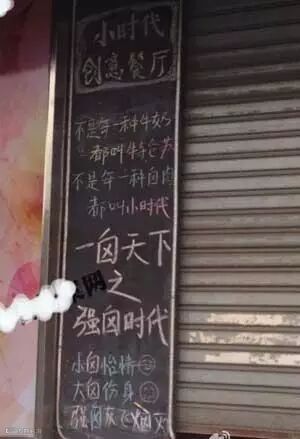 小时代
创意餐厅
不是每一种牛奶
都叫特仑苏
不是每一种卤肉
都叫小时代
一卤天下
之
强卤时代
小卤怡情
大卤伤身
强卤灰飞烟灭